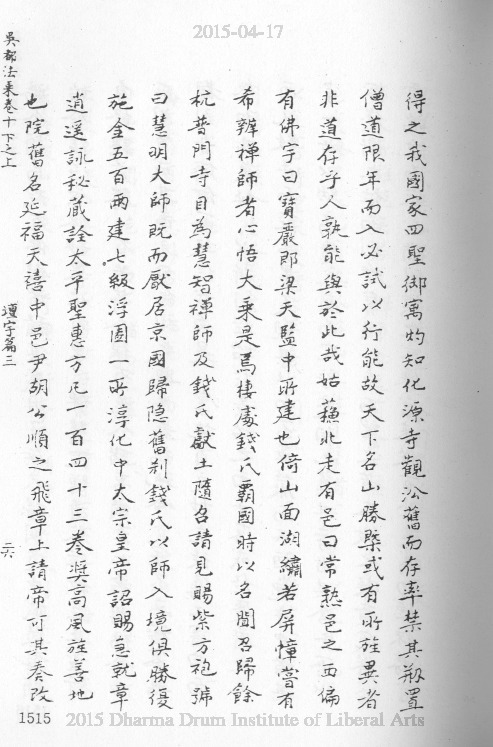 2015-04-17
得之我國家四聖御寓灼知化源寺觀沿舊而存率禁其剏置
僧道限年而入必試以行能故天下名山勝槩或有所旌異者
非道存乎人孰能與於此哉姑蘇北走有邑曰常熟邑之西偏
有佛宇曰寶嚴即梁天監中所建也倚山面湖繡若屏幛嘗有
希辨禪師者心悟大乘是焉棲處錢氏霸國時以名聞召歸餘
杭普門寺目為慧智禪師及錢氏獻土隨名請見賜紫方袍號
曰慧明大師既而厭居京國歸隐舊刹錢氏以師入境俱勝復
施金五百两建七級浮圖一所淳化中太宗皇帝詔賜急就章
逍遥詠秘藏詮太平聖惠方凡一百四十三卷奬高風旌善地
也院舊名延福天禧中邑尹胡公順之飛章上請帝可其奏改
吳都法乘卷十下之上
壇宇篇三
二六
1515
2015 Dharma Drum Institute of Liberal Arts